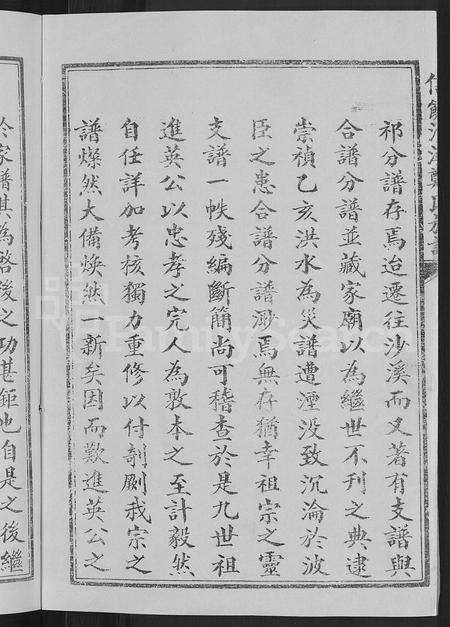 祁分譜存焉迨遷往沙溪而又著有支譜與
合譜分譜並藏家廟以為繼世不刊之典逮
崇禎乙亥洪水為災譜遭湮没致沉淪於波
臣之患合譜分譜渺焉無存猶幸祖宗之靈
支譜一帙殘編斷簡尚可稽查於是九世祖
進英公以忠孝之完人為敦本之至計毅然
自任詳加考核獨力重修以付剞劂我宗之
譜燦然大備煥然一新矣因而歎進英公之
於家譜其為啓後之功甚鉅也自是之後繼
FamilySearch